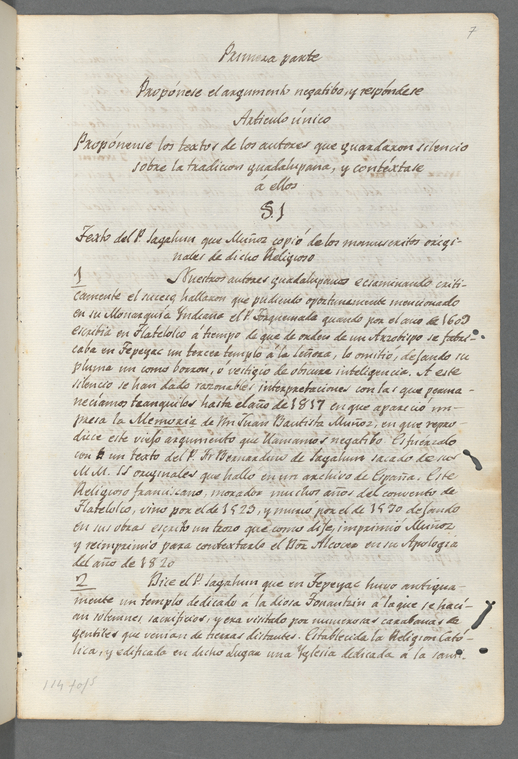 7
Primera parte
Propónese el argumento negatibo, y respóndese
Articulo único
Propónense los textos de los autores que guardaron silencio
sobre la tradicion guadalupana, y contéxtase
á ellos
§. 1
Texto del P. Sagahun que Muñoz copió de los manuscritos origi-
nales de dicho Religioso
1 Nuestros autores guadalupanos ecsaminando criti-
camente el suceso hallaron que pudiendo oportunamente mencionarlo
en su Monarquia Yndiana el P. Torquemada quando por el año de 1609
escribia en Tlatelolco á tiempo de que de orden de un Arzobispo se fabri-
caba en Tepeyac un tercer templo á la Señora, lo omitio, dejando su
pluma un como borron, o vestigio de obscura inteligencia. A este
silencio se han dado razonables interpretaciones con las que perma-
neciamos tranquilos hasta el año de 1817 en que aparecio im-
presa la Memoria de Dn Juan Bautista Muñoz, en que repro-
duce este viejo argumento que llamamos negatibo. Esfuerzalo
con un texto del P. Fr Bernardino de Sagahun sacado de sus
M.M. SS originales que hallo en un archivo de España. Este
Religioso franciscano, morador muchos años del convento de
Tlatelolco, vino por el de 1529, y murio por el de 1590 dejando
en sus obras escrito un trozo que como dije, imprimió Muñoz
y reimprimió para contextarlo el Dor Alcocer en su Apologia
del año de 1820
2 Dice el P. Sagahun que en Tepeyac huvo antigua-
mente un templo dedicado a la diosa Tonantzin á la que se haci-
an solemnes sacrificios, y era visitado por numerosas carabanas de
gentiles que venian de tierras distantes. Establecida la Religion Cató-
lica, y edificada en dicho lugar una Yglesia dedicada á la Santi-
114 fojs